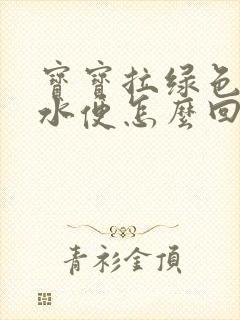 寶寶拉绿色
水便怎麼回
青衫金頂